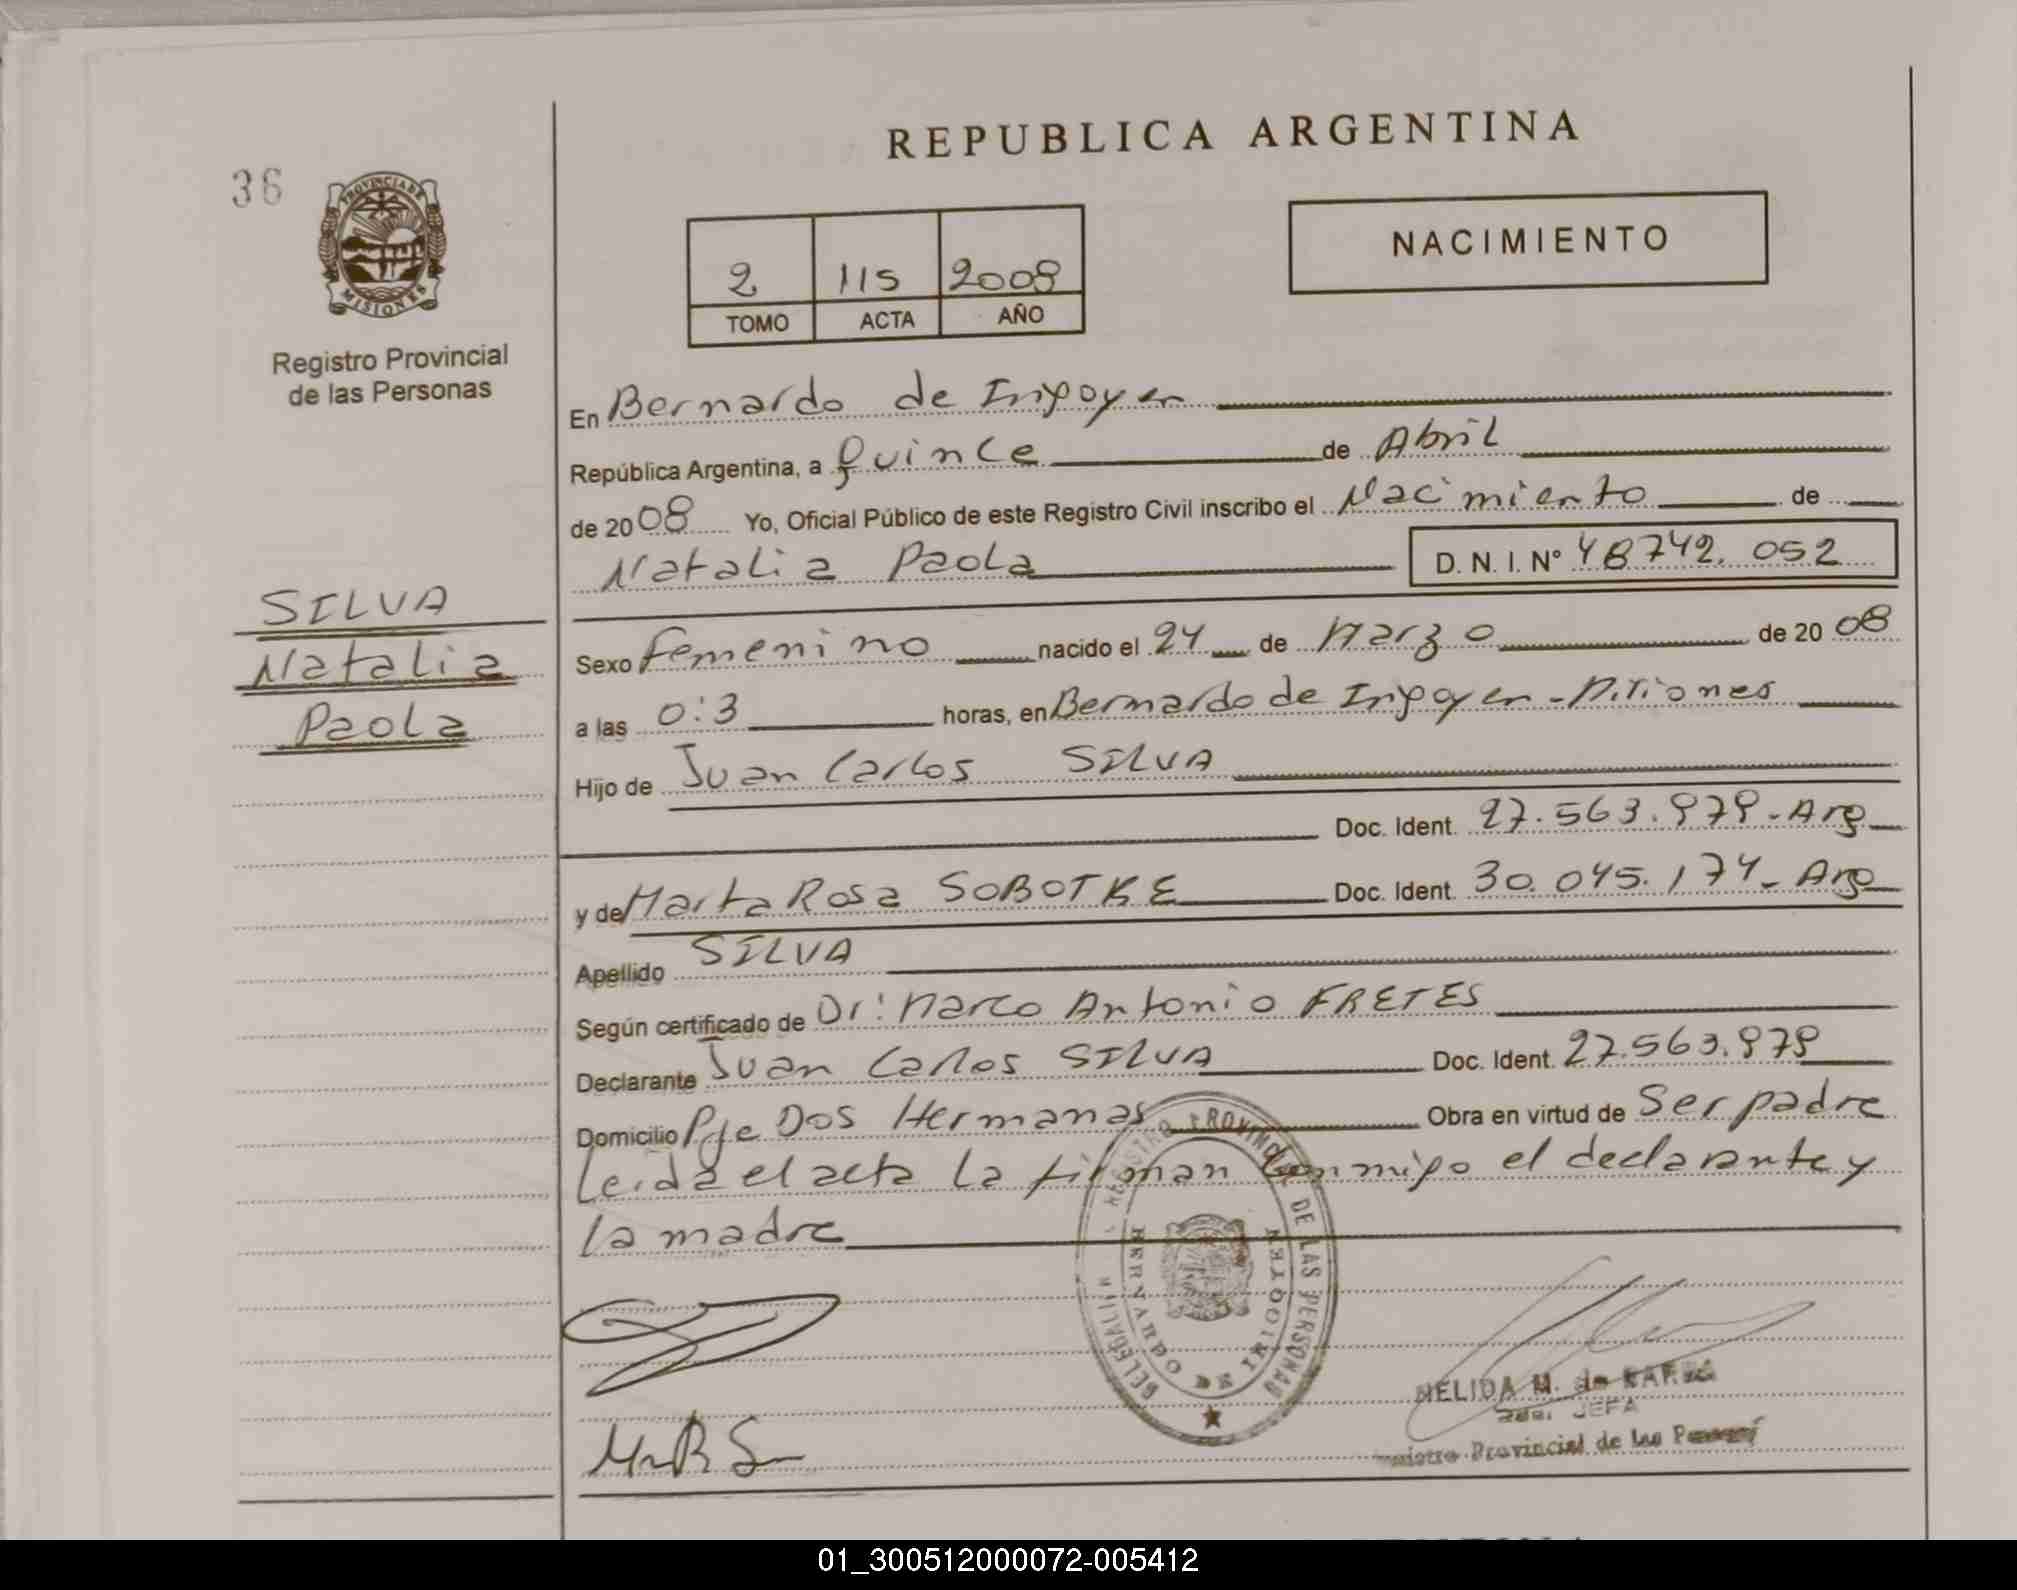 REPUBLICA ARGENTINA
36
PROVINCIA DE
MISIONES
Registro Provincial
de las Personas
2 115 2008
TOMO ACTA AÑO
NACIMIENTO
En Bernardo de Irigoyen
República Argentina, a Quince de Abril
de 2008 Yo, Oficial Público de este Registro Civil inscribo el Nacimiento de
Natalia Paola D. N. I. Nº 48742.052
SILVA
Natalia
Paola
Sexo Femenino nacido el 24 de Marzo de 2008
a las 0:3 horas, en Bernardo de Irigoyen - Misiones
Hijo de Juan Carlos SILVA
Doc. Ident. 27.563.979 - Arg
y de Marta Rosa SOBOTKE Doc. Ident. 30.045.174 - Arg
Apellido SILVA
Según certificado de Dr: Marco Antonio FRETES
Declarante Juan Carlos SILVA Doc. Ident. 27.563.979
Domicilio Pje Dos Hermanas Obra en virtud de Ser padre
Leida el acta la firman conmigo el declarante y
la madre
REGISTRO PROVINCIAL DE LAS PERSONAS
BERNARDO DE IRIGOYEN
NELIDA M. de
JEFA
Provincial de las
01_300512000072-005412